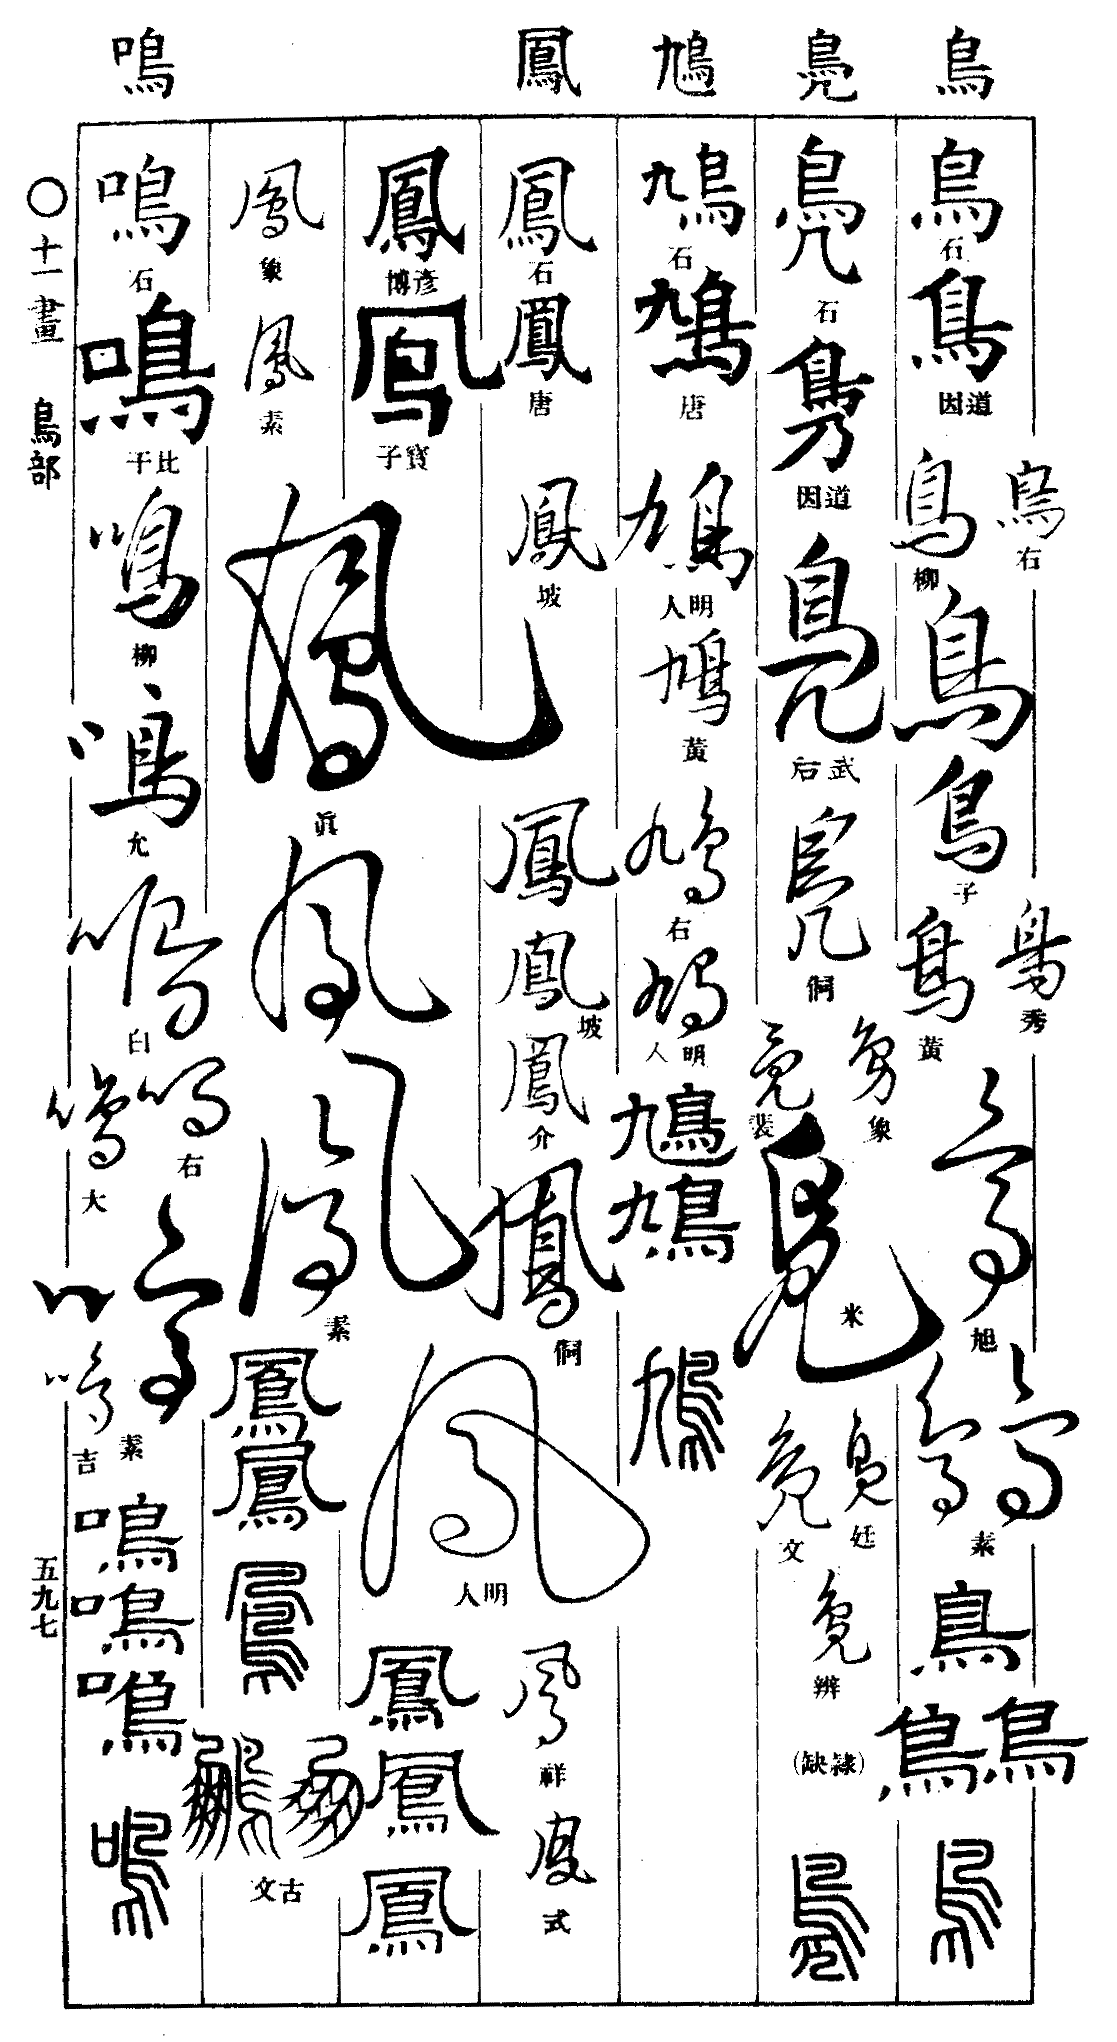 鳥 鳧 鳩 鳳 鳴
鳥 石 鳥 道因 鳥 右 鳥 柳 鳥 鳥 子 鳥 秀 鳥 黃 鳥 旭 鳥 鳥 素 鳥 鳥 鳥 鳥
鳧 石 鳧 道因 鳧 武后 鳧 侗 鳧 象 鳧 裴 鳧 米 鳧 廷 鳧 文 鳧 辨 (隸缺) 鳧
鳩 石 鳩 唐 鳩 明人 鳩 黃 鳩 右 鳩 明人 鳩 鳩 鳩
鳳 石 鳳 唐 鳳 坡 鳳 鳳 坡 鳳 介 鳳 侗 鳳 祥 鳳 式
鳳 彥博 鳳 寶子 鳳 明人 鳳 鳳 鳳
鳳 象 鳳 素 鳳 眞 鳳 鳳 素 鳳 鳳 鳳 古文
鳴 石 鳴 比干 鳴 柳 鳴 允 鳴 白 鳴 右 鳴 大 鳴 素 鳴 吉 鳴 鳴 鳴 鳴
○十一畫 鳥部
五九七